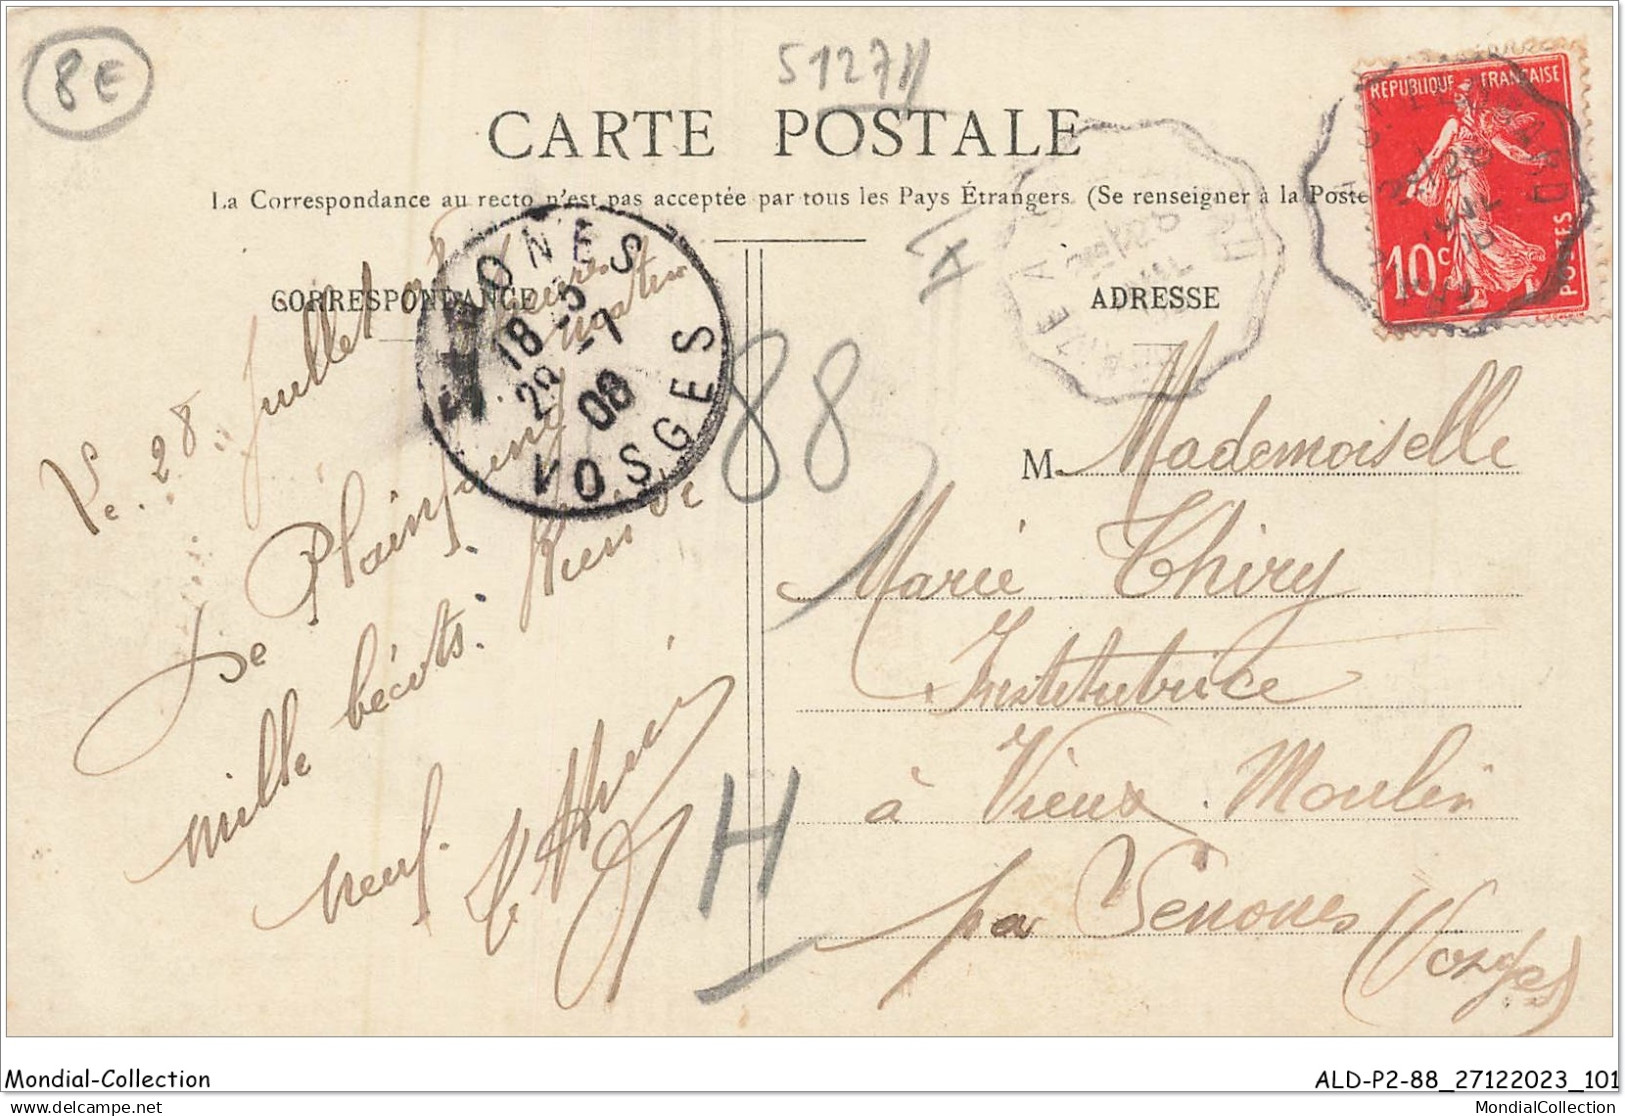 8E
51271
CARTE POSTALE
La Correspondance au recto n'est pas acceptée par tous les Pays Étrangers. (Se renseigner à la Poste
RÉPUBLIQUE FRANÇAISE
10c
POSTES
CORRESPONDANCE
ADRESSE
SENONES
18-5
28-7
08
VOSGES
A
88
H
28 Juillet 08
heures
De Plainfaing
mille bécots. Rien de
neuf.
M Mademoiselle
Marie Thiry
Institutrice
à Vieux-Moulin
par Senones
(Vosges)
Mondial-Collection
ALD-P2-88_27122023_101
MondialCollection